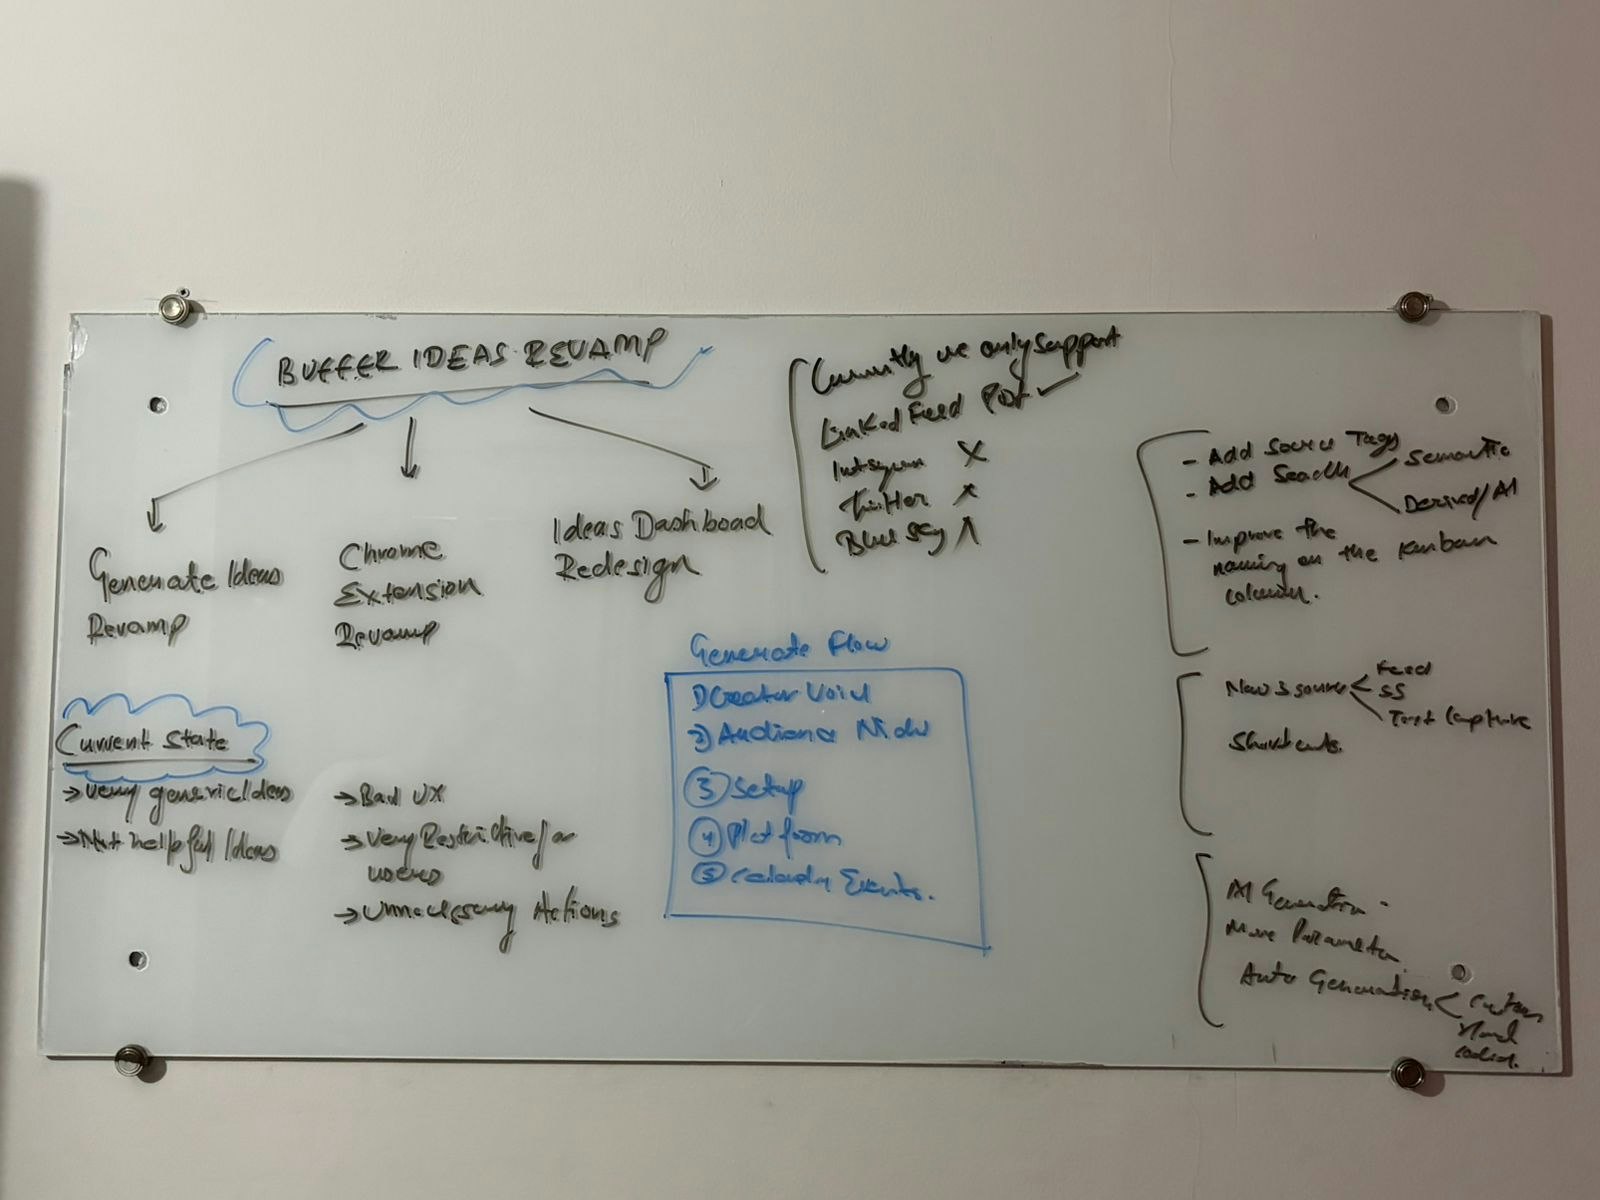 BUFFER IDEAS REVAMP
Generate Ideas
Revamp
Chrome
Extension
Revamp
Ideas Dashboad
Redesign
Current State
→ Very generic Ideas
→ Not helpful Ideas
→ Bad UX
→ Very Restrictive for
users
→ Unnecessary Actions
Currently we only support
Linked Feed ✓
✗
Twitter ✗
Blue Sky
Generate Flow
1) Creator Void
2) Audience
③ Setup
④ Platform
⑤ Events.
- Add Source Tags
- Add Search < Semantic
Derived/AI
- Improve the
naming on the Kanban
column.
Feed
SS
Text Capture
Shortcuts.
AI Generation -
More Parameter
Auto Generation < Custom